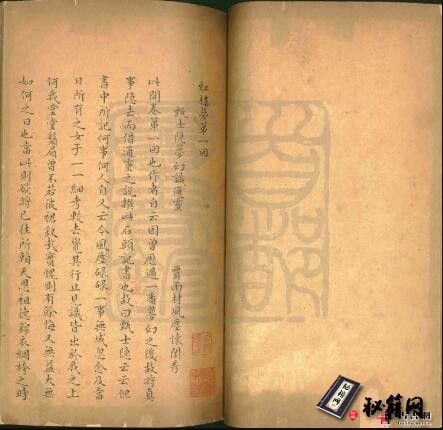 紅樓夢第一回
甄士隱夢幻識通靈　賈雨村風塵懷閨秀
此開卷第一回也作者自云因曾歷過一番夢幻之後故將真
事隱去而借通靈之說撰此石頭記書也故曰甄士隱云云但
書中所記何事何人自又云今風塵碌碌一事無成忽念及當
日所有之女子一一細考較去覺其行止見識皆出於我之上
何我堂堂鬚眉曾不若彼裙釵哉實愧則有餘悔又無益大無
如何之日也當此則欲將已往所賴天恩祖德錦衣紈袴之時
秘籍网